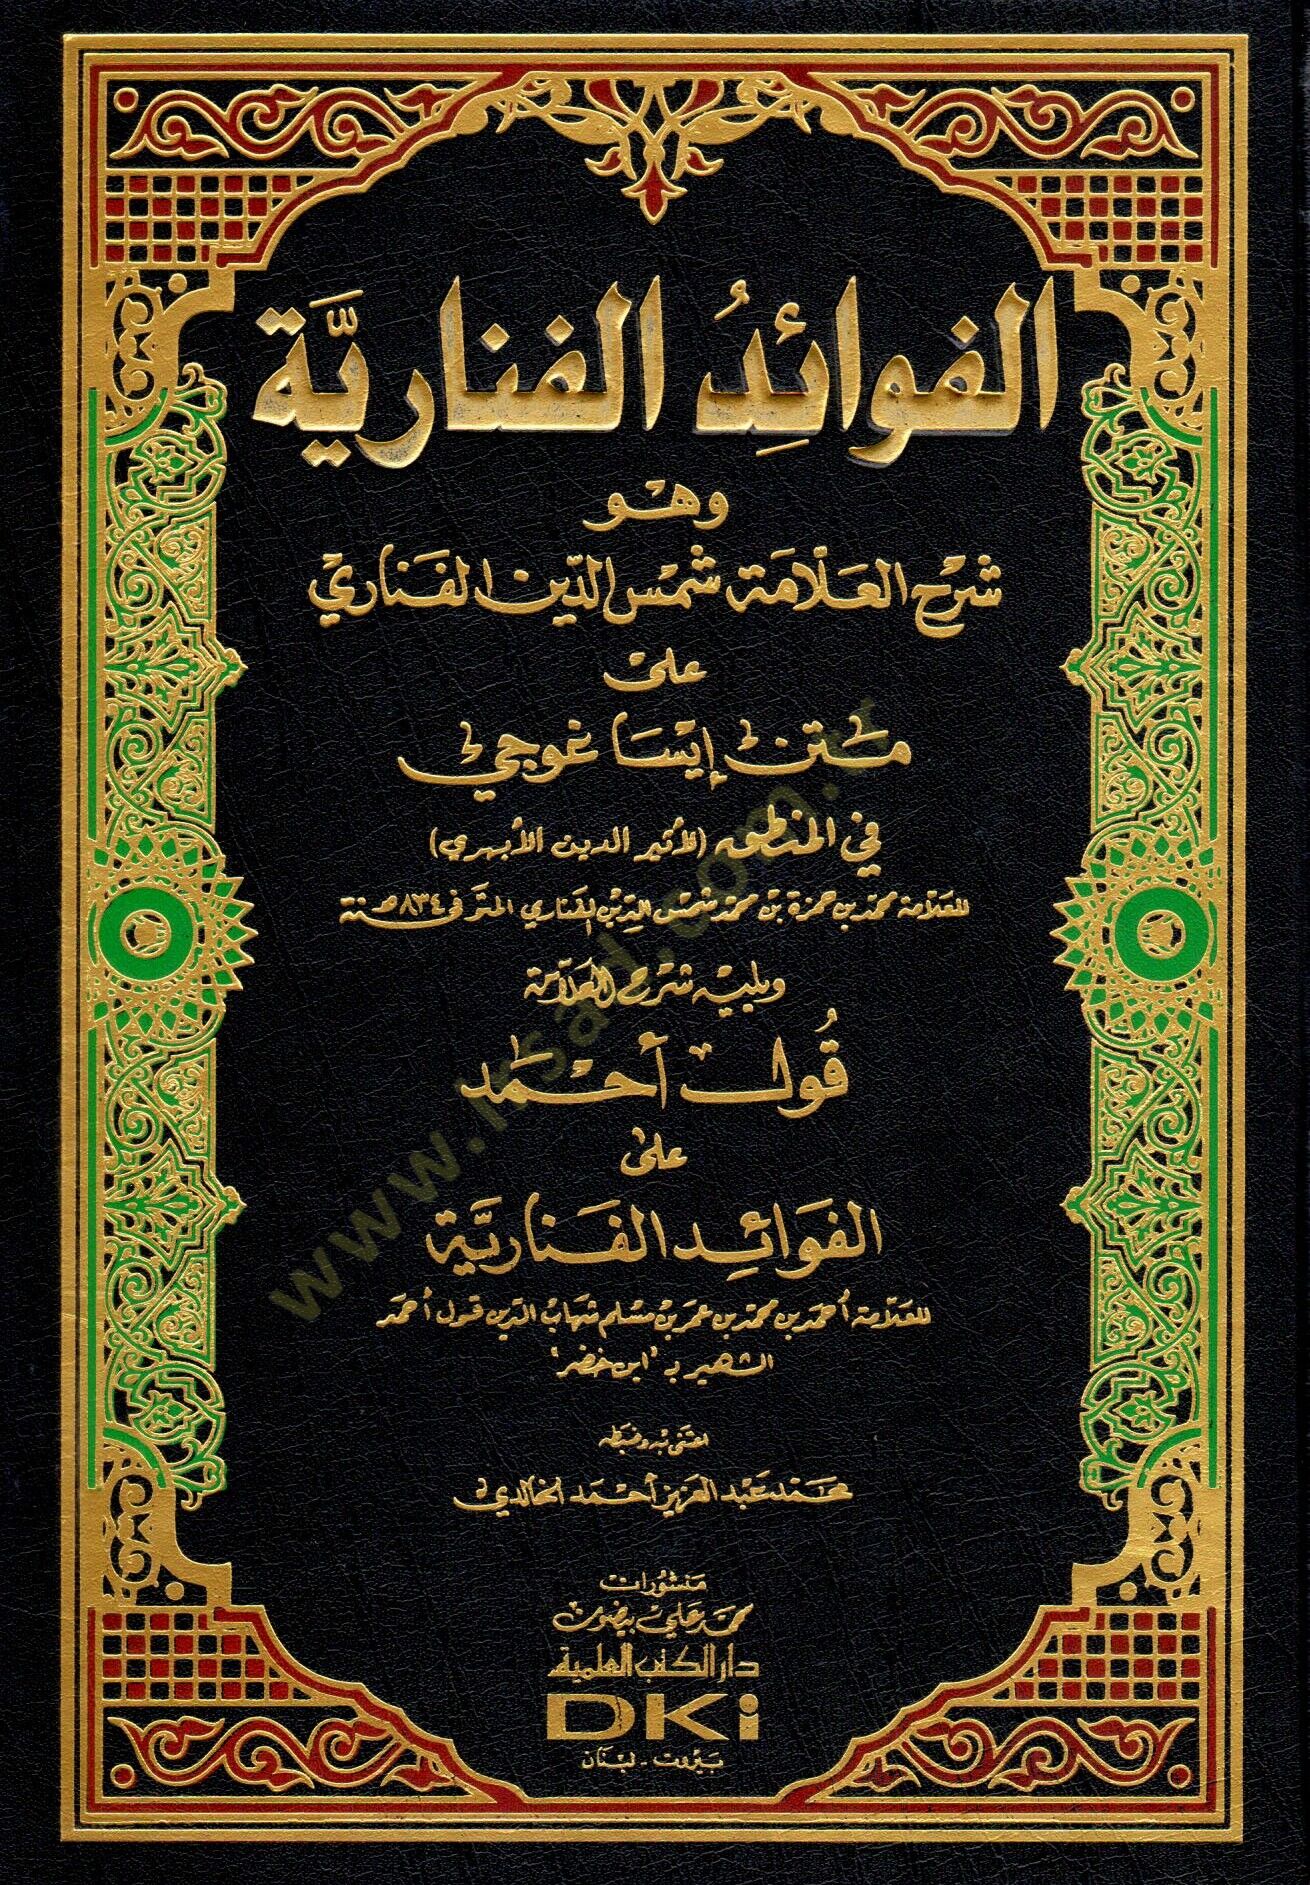 الفوائدُ الفناريَّة
وهو
شرح العلّامة شمس الدّين الفَناري
على
متن إيساغوجي
في المنطق (لأثير الدين الأبهري)
للعلّامة محمد بن حمزة بن محمد شمس الدين الفناري المتوفى ٨٣٤هـ سنة
ويليه شرح العلّامة
قُول أحمد
على
الفوائد الفَناريَّة
للعلّامة أحمد بن محمد بن عمر بن مسلم شهاب الدين قول أحمد
الشهير بـ "ابن خضر"
اعتنى به وضبطه
محمد عبد العزيز أحمد الخالدي
منشورات
محمد علي بيضون
دار الكتب العلمية
DKi
بيروت - لبنان
www.irsad.com.tr